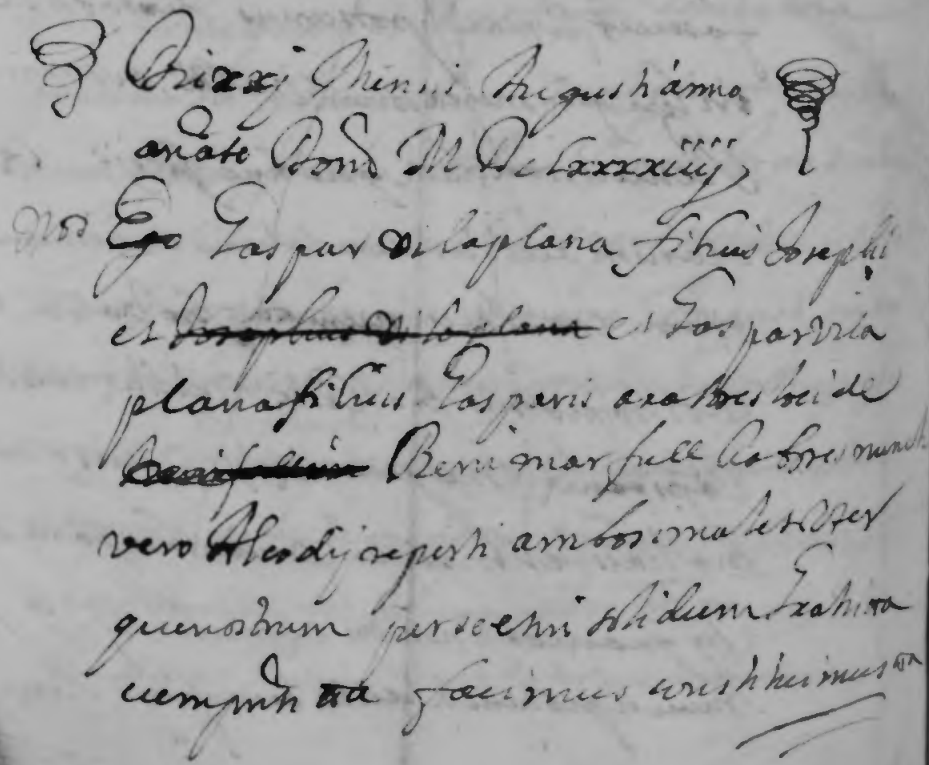 Die xxj Mensis Augusti anno
a nate Domi M DC Lxxxxiiij
Nos Ego Gaspar Vilaplana filius Josephi
et Josephus Vilaplana et Gaspar Vila
plana filius Gasparis aratores loci de
Benimarfull habres nunch
vero Alcodij reperti ambo simul et uter
que nostrum per se et in solidum Gratis etta
cum pnti etta facimus constituimus etta